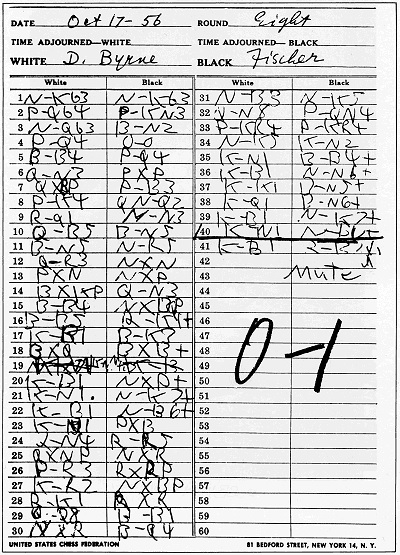 DATE Oct 17-56 ROUND Eight
TIME ADJOURNED—WHITE TIME ADJOURNED — BLACK
WHITE D. Byrne BLACK Fischer
White Black White Black
1 N-KB3 N-KB3
2 P-QB4 P-KN3
3 N-QB3 B-N2
4 P-Q4 O-O
5 B-B4 P-Q4
6 Q-N3 PXP
7 QXBP P-B3
8 P-K4 QN-Q2
9 R-Q1 N-N3
10 Q-B5 B-N5
11 B-N5 N-R5
12 Q-R3 NXN
13 PXN NXP
14 BXKP Q-N3
15 B-B4 NXBP
16 B-B5
17 K-B1 B-K3
18 BXQ BXB+
19
20 K-B1 NXP+
21 K-N1 N-K7+
22 K-B1 N-B6+
23 K-N1 PXB
24 Q-N4 R-R5
25 QXNP NXR
26 P-R3 RXRP
27 K-R2 NXBP
28 R-K1 RXR
29 Q-Q8 B-B1
30 NXR B-Q4
31 N-B3 N-K5
32 Q-N8 P-QN4
33 P-KR4 P-KR4
34 N-K5 K-N2
35 K-N1 B-B4+
36 K-B1 N-N6+
37 K-K1 B-N5+
38 K-Q1 B-N6+
39 K-B1 N-K7+
40 K-N1 N-B6+
41 K-B1 R-B7
42
43 Mate
44
45
46
47
48
49 0-1
50
51
52
53
54
55
56
57
58
59
60
UNITED STATES CHESS FEDERATION 81 BEDFORD STREET, NEW YORK 14, N. Y.